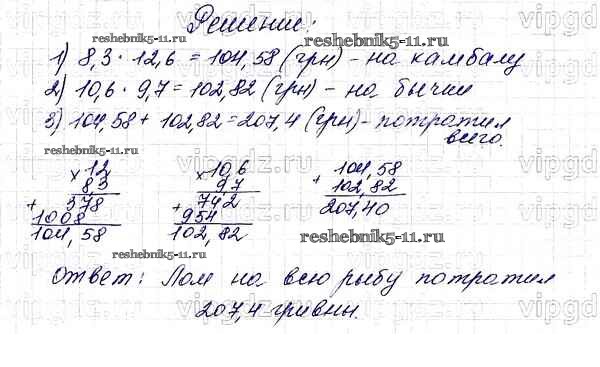 Решение:
reshebnik5-11.ru
1) 8,3 · 12,6 = 104,58 (грн) - на камбалу
2) 10,6 · 9,7 = 102,82 (грн) - на бычки
3) 104,58 + 102,82 = 207,4 (грн) - потратил
всего.
reshebnik5-11.ru
x 12 x 10,6 104,58
8,3 9,7 + 102,82
+ 378 742 207,40
1008 + 954
104,58 102,82
reshebnik5-11.ru
reshebnik5-11.ru
Ответ: Пом на всю рыбу потратил
207,4 гривны.